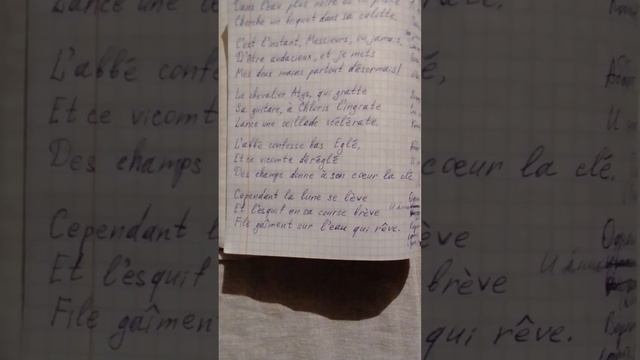 Dans l'eau plus noire
Cherche un briquet dans sa culotte.
C'est l'instant, Messieurs, ou jamais,
D'être audacieux, et je mets
Mes deux mains partout désormais!
Le chevalier Atys, qui gratte
Sa guitare, à Chloris l'ingrate
Lance une œillade scélérate.
L'abbé confesse bas Eglé,
Et ce vicomte déréglé
Des champs donne à son cœur la clé.
Cependant la lune se lève
Et l'esquif en sa course brève
File gaîment sur l'eau qui rêve.